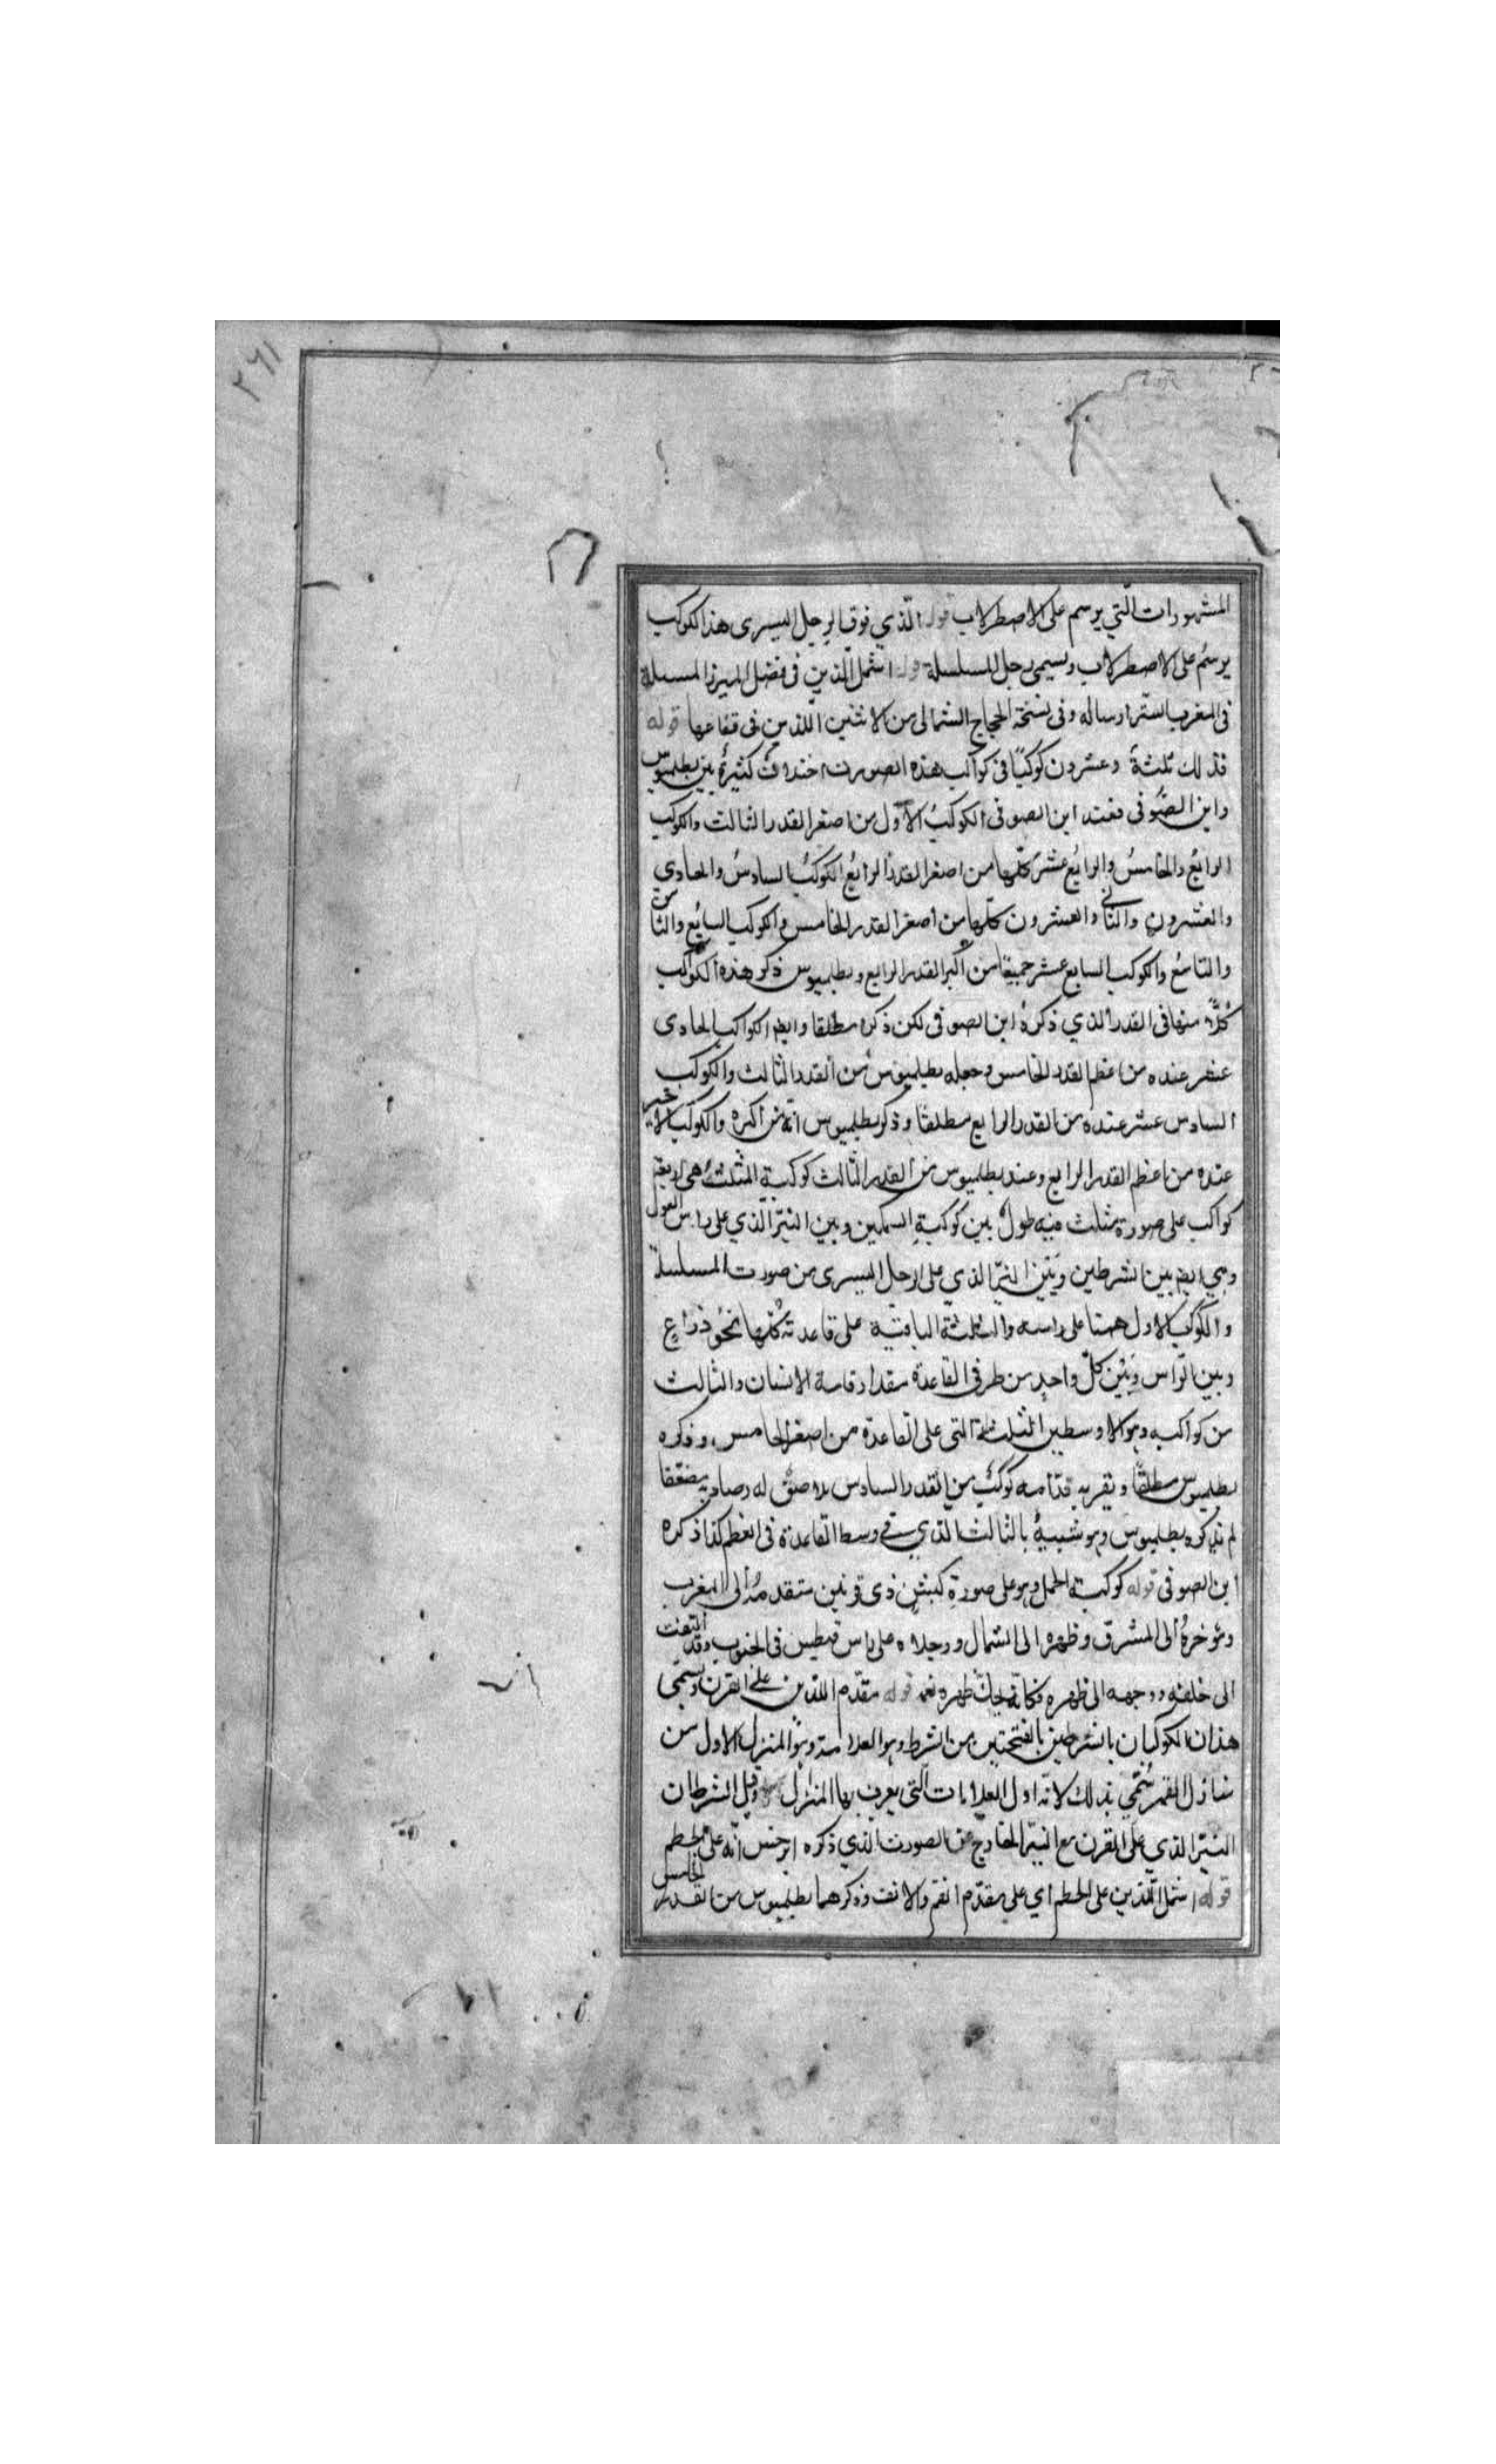 ٢٦١
المشهورات الّتي يرسم على الاصطرلاب قوله الّذي فوق الرجل اليسرى هذا الكوكب
يرسمُ على الاصطرلاب ويسمى رجل المسلسلة قوله اشمل الّذين فى فضل الميزر المسبلة
وفى نسخة الحجاج الشمالى من الاثنين اللّذين فى قوله
فذلك ثلثةٌ وعشرون كوكبًا فى كواكب هذه الصورت اختلاف كثيرةٌ بين بطلميوس
وابن الصّوفى فعند ابن الصوفى الكوكبُ الاوّل من اصغر القدر الثالث والكوكب
الرابعُ والخامسُ والرابعُ عشر كلّها من اصغر القدر الرابع الكوكبُ السادسُ والحادى
والعشرون والثانى والعشرون كلّها من اصغر القدر الخامس والكوكب السابعُ والثامن
والتاسعُ والكوكب السابع عشر جميعًا من اكبر القدر الرابع وبطلميوس ذكر هذه الكواكب
كُلًّا منها فى القدر الّذي ذكرهُ ابن الصوفى لكن ذكره مطلقا وايضا الكواكب الحادى
عشر عنده من اعظم القدر الخامس وجعله بطلميوس من القدر الثالث والكوكب
السادس عشر عنده من القدر الرابع مطلقًا وذكر بطلميوس انّه من اكبره والكوكب الاخير
عنده من اعظم القدر الرابع وعند بطلميوس من القدر الثالث كوكبة المثلث هى اربعة
كواكب على صورة مثلث فيه طولٌ بين كوكبةِ السمكين وبين النيّر الّذي على راس الغول
وهي ايضا بين الشرطين وبَيْن النيّر الذي على الرجل اليسرى من صورت المسلسلة
والكوكب الاول منها على راسه والثلثة الباقية على قاعدته كُلّها نحو ذراعٍ
وبين الرّاس وبَيْن كلّ واحدٍ من طرفى القاعدة مقدار قامة الانسان والثالث
من كواكبه وهو الاوسط من الثلثة التى على القاعدة من اصغر الخامس وذكره
بطلميوس مطلقًا وبقربه قدّامه كوكبٌ من القدر السادس ملاصقٌ له وصار به مضعّفا
لم يذكره بطلميوس وهو شبيهٌ بالثالث الّذي فى وسط القاعدة فى العظم كذا ذكره
ابن الصوفى قوله كوكبة الحمل وهو على صورةِ كبشٍ ذى قرنين مقدمهُ الى المغرب
ومؤخرهُ الى المشرق وظهره الى الشمال ورجلاه على راس قيطس فى الجنوب وقد التفت
الى خلفه ووجهه الى ظهره فكانّه يحكّ ظهره بفمه قوله مقدّم اللّذين على القرن ويسمّى
هذان الكوكبان بالشرطين بالفتحتين من الشرط وهو العلامة وهو المنزل الاول من
منازل القمر سُمّي بذلك لانّه اول العلامات الّتى يعرف بها المنازل وقيل الشرطان
النيّر الذي على القرن مع النيّر الخارج عن الصورت الّذي ذكره ابرخس انّه على الخطم
قوله اشمل اللّذين على الخطم اي على مقدّم الفم والانف وذكرهما بطلميوس من القدر الخامس